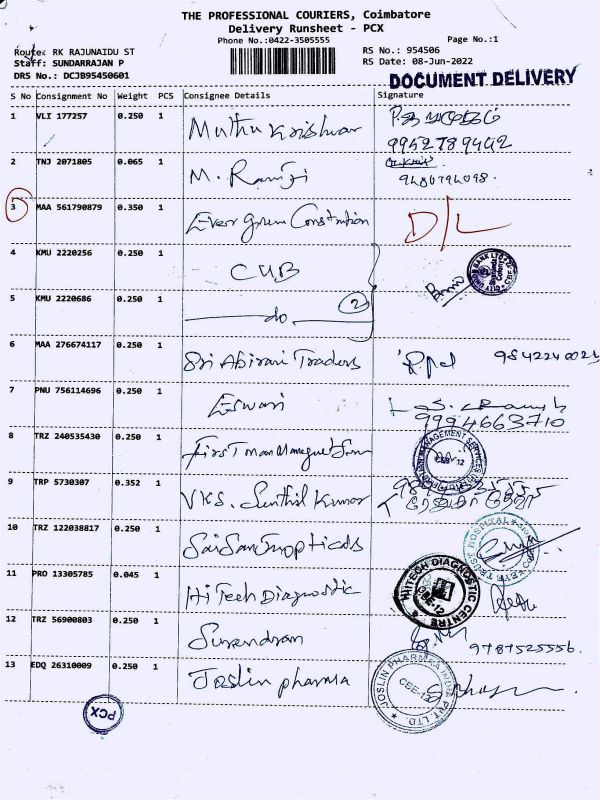 THE PROFESSIONAL COURIERS, Coimbatore
Delivery Runsheet - PCX
Phone No.:0422-3505555
Page No.:1
Route: RK RAJUNAIDU ST
RS No.: 954506
Staff: SUNDARRAJAN P
RS Date: 08-Jun-2022
DRS No.: DCJB95450601
DOCUMENT DELIVERY
S No Consignment No Weight PCS Consignee Details Signature
1 VLI 177257 0.250 1 Muthu Krishnan
9952789442
2 TNJ 2071805 0.065 1 M. Ramji
9480794098.
3 MAA 561790879 0.350 1 Ever green Constrution D/L
4 KMU 2220256 0.250 1 CUB
5 KMU 2220686 0.250 1 do 2
6 MAA 276674117 0.250 1 Sri Abirami Traders
7 PNU 756114696 0.250 1 Eswari
9994663710
8 TRZ 240535430 0.250 1 First man
9 TRP 5730307 0.352 1 VKS. Senthil Kumar
10 TRZ 122038817 0.250 1 Sai Sam opticals
11 PRO 13305785 0.045 1 Hi Tech Diagnostic
HITECH DIAGNOSTIC CENTRE
CBE-12
12 TRZ 56900803 0.250 1 Surendran
9787525556.
13 EDQ 26310009 0.250 1 Joslin pharma
JOSLIN PHARMA INDIA PVT. LTD.
PCX